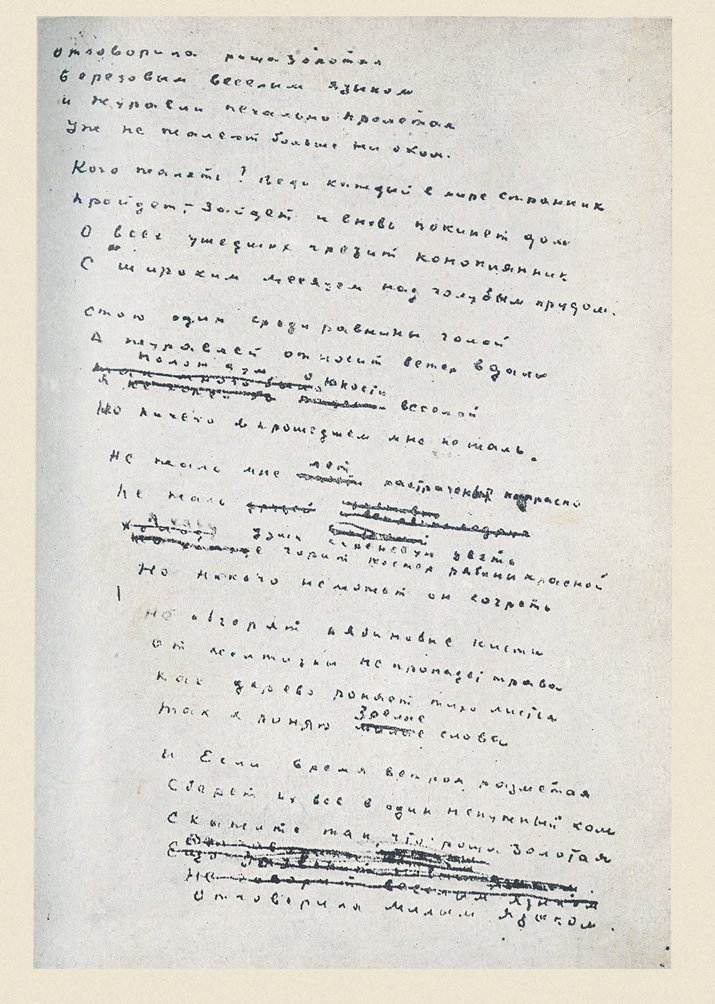 отговорила роща золотая
березовым веселым языком
и журавли печально пролетая
уже не жалеют больше ни о ком.
Кого жалеть? Ведь каждый в мире странник
Пройдет, зайдет и вновь покинет дом
О всех ушедших грезит конопляник
С широким месяцем над голубым прудом.
Стою один среди равнины голой
А журавлей относит ветер вдаль
Я полон дум о юности веселой
Но ничего в прошедшем мне не жаль.
Не жаль мне лет растраченных напрасно
Не жаль
души сиреневую цветь
горит костер рябины красной
Но никого не может он согреть
Не обгорят рябиновые кисти
от желтизны не пропадет трава
как дерево роняет тихо листья
так я роняю милые слова
Зрелые
И Если время ветром разметая
Сберет их все в один ненужный ком
Скажите так, что роща золотая
Отговорила милым языком.